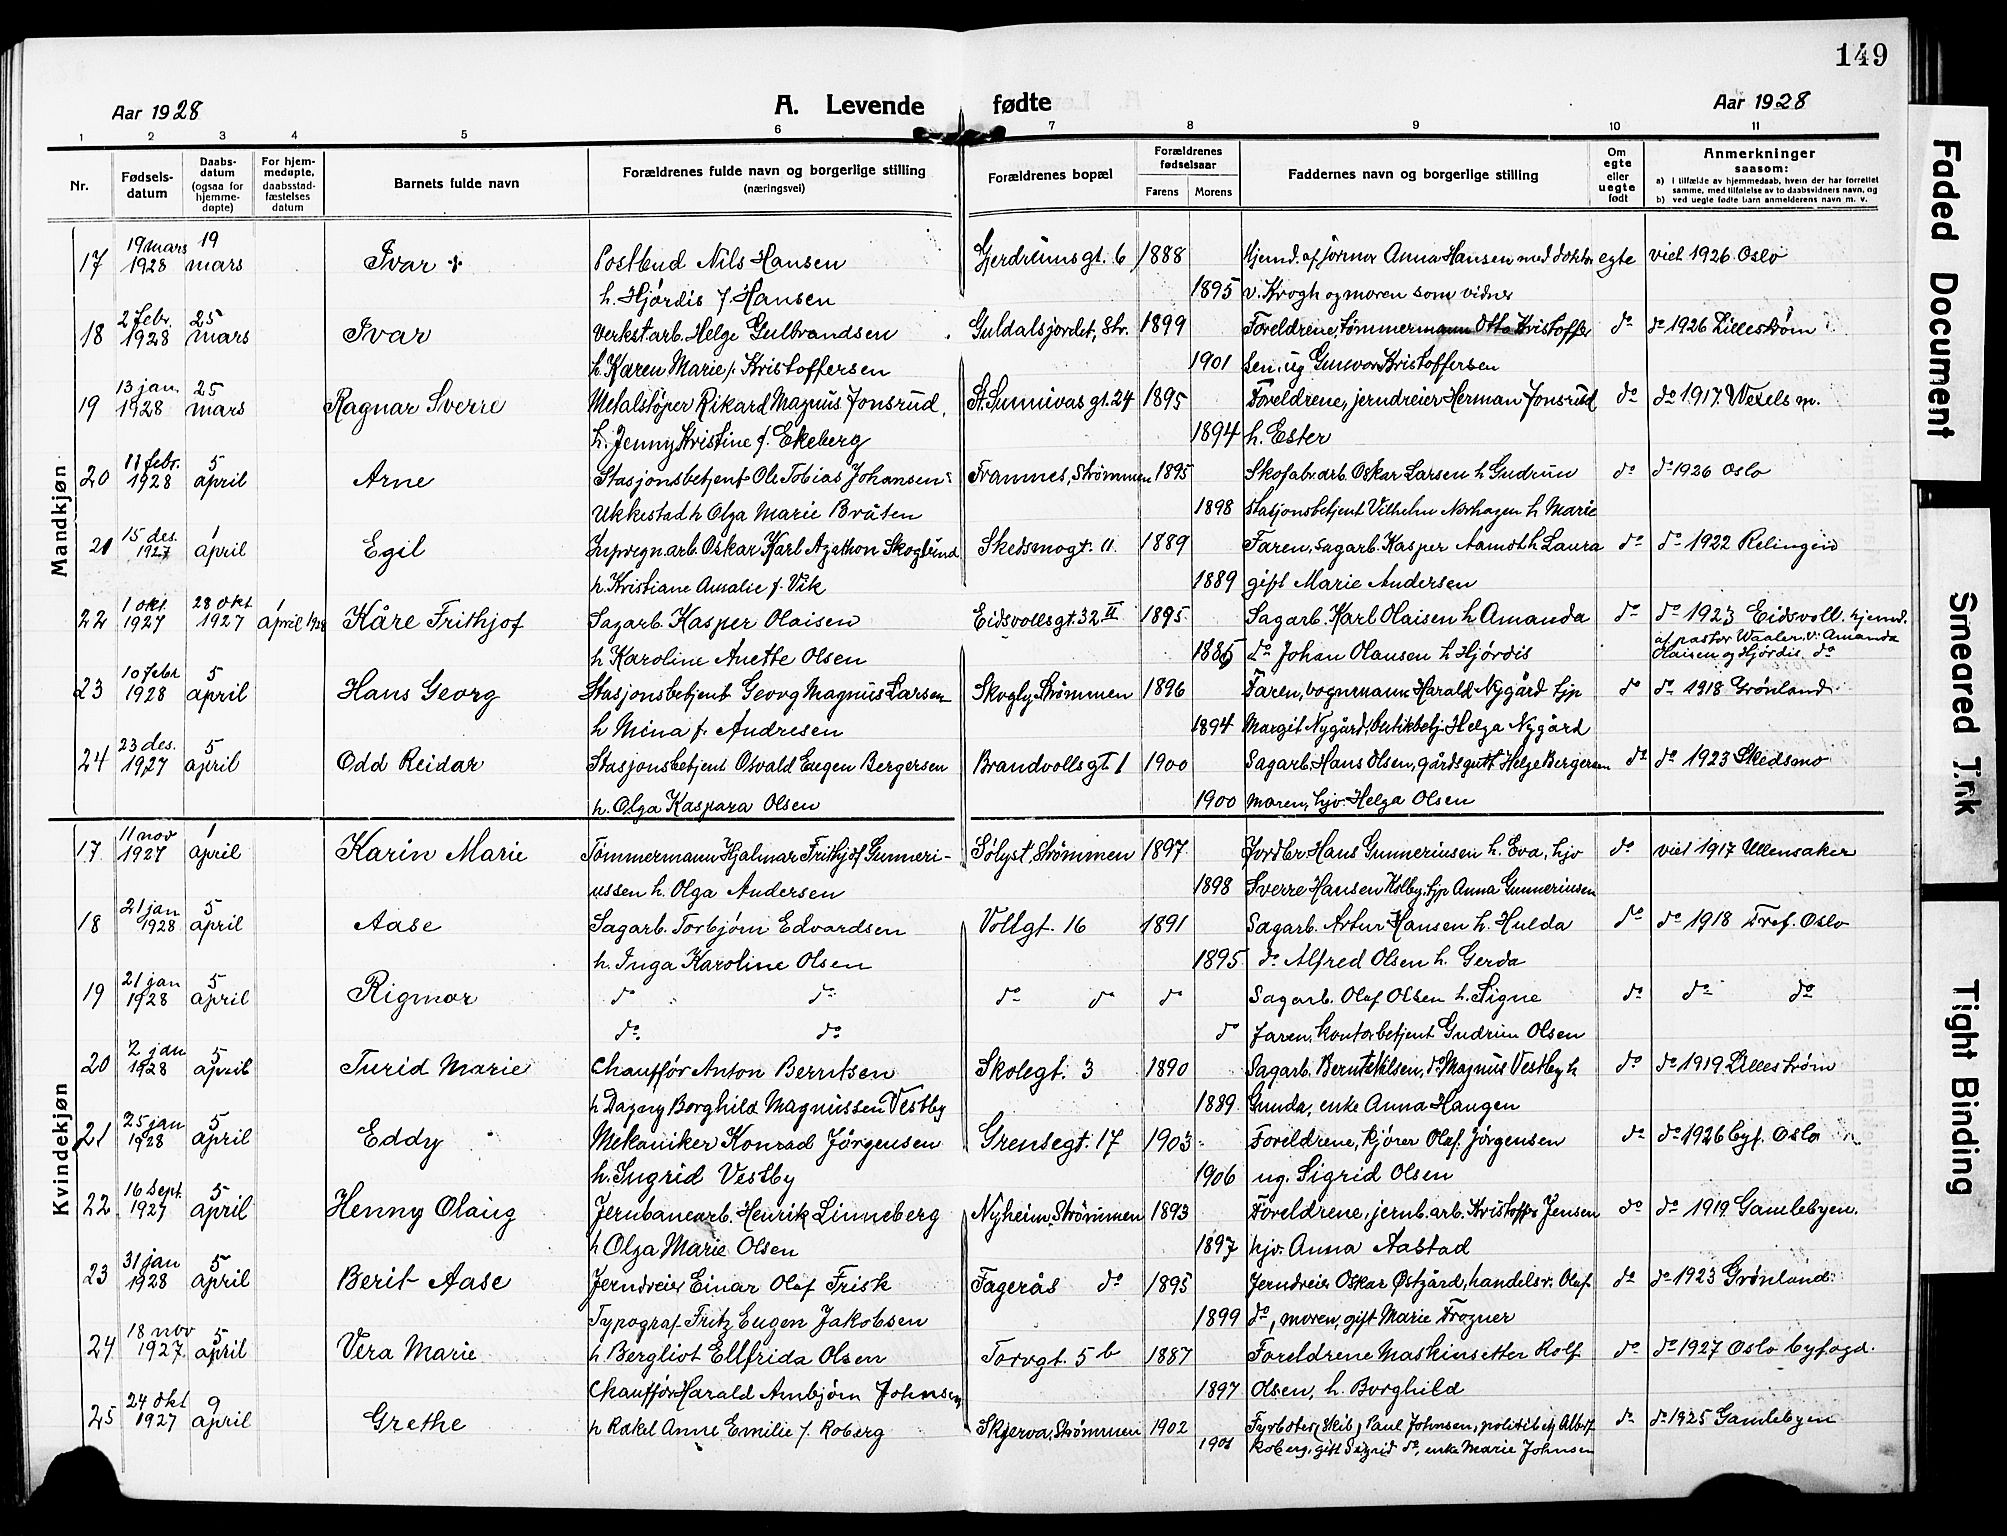 149
Aar 1928
A. Levende fødte
Aar 1928
1 2 3 4 5 6 7 8 9 10 11
Nr.
Fødsels-datum
Daabs-datum (ogsaa for hjemme-døpte)
For hjem-medøpte, daabsstad-fæstelses datum
Barnets fulde navn
Forældrenes fulde navn og borgerlige stilling (næringsvei)
Forældrenes bopæl
Forældrenes fødselsaar
Farens Morens
Faddernes navn og borgerlige stilling
Om egte eller uegte født
Anmerkninger saasom:
a) I tilfælde av hjemmedaab, hvem der har forrettet samme, med tilføielse av to daabsvidners navn, og
b) ved uegte fødte barn anmelderens navn m. v.
Mandkjøn
17 19 mars 1928 19 mars Ivar + Postbud Nils Hansen Gjerdrumsgt. 6 1888 Hjemd. af formor Anna Hansen med doktor egte viet 1926 Oslo
h. Hjördis f. Hansen 1895 v. Krogh og moren som vidner
18 2 febr. 1928 25 mars Ivar Verkst.arb. Helge Gulbrandsen Guldalsjordet, Str. 1899 Foreldrene, tømmermann Otto Kristoffer do do 1926 Lillestrøm
h. Karen Marie f. Kristoffersen 1901 sen, ug Gunvor Kristoffersen
19 13 jan. 1928 25 mars Ragnar Sverre Metalstøper Rikard Magnus Jonsrud, St. Sunnivas gt. 24 1895 Foreldrene, jerndreier Herman Jonsrud do do 1917. Wexels m.
h. Jenny Kristine f. Ekeberg 1894 h. Ester
20 11 febr. 1928 5 april Arne Stasjonsbetjent Ole Tobias Johansen Framnes, Strømmen 1895 Skofabr.arb. Oskar Larsen h Gudrun do do 1926 Oslo
Ukkestad h Olga Marie Bråten 1898 Stasjonsbetjent Vilhelm Norhagen h Marie
21 15 des. 1927 1 april Egil Impregn.arb. Oskar Karl Agathon Skoglund Skedsmogt. 11 1889 Faren, sagarb. Kasper Aamodt h Laura do do 1922 Relingen
h Kristiane Amalie f. Vik 1889 gift Marie Andersen
22 1 okt. 1927 28 okt 1927 1 april 1928 Kåre Frithjof Sagarb. Kasper Olaisen Eidsvollsgt. 32 II 1895 Sagarb. Karl Olaisen h Amanda do do 1923 Eidsvoll. hjemd.
h Karoline Anette Olsen 1886 do Johan Olausen h Hjördis af pastor Waaler v: Amanda Olaisen og Hjördis do
23 10 febr 1928 5 april Hans Georg Stasjonsbetjent Georg Magnus Larsen Skogly, Strømmen 1896 Faren, vognmann Harald Nygård hjp do do 1918 Grønland
h Mina f. Andresen 1894 Margit Nygård, butikbetj Helga Nygård
24 23 des. 1927 5 april Odd Reidar Stasjonsbetjent Osvald Eugen Bergersen Brandvollsgt 1 1900 Sagarb. Hans Olsen, gårdsgutt Helge Bergersen do do 1923 Skedsmo
h. Olga Kaspara Olsen 1900 moren, hjv. Helga Olsen
Kvindekjøn
17 11 nov 1927 1 april Karin Marie Tømmermann Hjalmar Frithjof Gunneri- Sølyst, Strømmen 1897 Jordbr Hans Gunneriusen h. Eva, hjv do viet 1917 Ullensaker
ussen h. Olga Andersen 1898 Sverre Hansen Kolby, hjp Anna Gunneriusen
18 21 jan 1928 5 april Aase Sagarb. Torbjørn Edvardsen Vollgt. 16 1891 Sagarb. Artur Hansen h. Hulda do do 1918 Tref. Oslo
h. Inga Karoline Olsen 1895 do Alfred Olsen h. Gerda
19 21 jan 1928 5 april Rigmor do do do do do Sagarb. Olaf Olsen h. Signe do do do
do do do Faren, kontorbetjent Gudrun Olsen
20 2 jan 1928 5 april Turid Marie Chauffør Anton Berntsen Skolegt. 3 1890 Sagarb. Bernt Nilsen, do Magnus Vestby h do do 1919 Lillestrøm
h Dagny Borghild Magnussen Vestby 1889 Gunda, enke Anna Haugen
21 25 jan 1928 5 april Eddy Mekaniker Konrad Jörgensen Grensegt. 17 1903 Foreldrene, kjører Olaf Jörgensen do do 1926 byf. Oslo
h. Ingrid Vestby 1906 ug. Sigrid Olsen
22 16 sept. 1927 5 april Henny Olaug Jernbanearb. Henrik Linneberg Nyheim, Strømmen 1893 Foreldrene, jernb.arb. Kristoffer Jensen do do 1919 Gamlebyen.
h Olga Marie Olsen 1897 hjv. Anna Aastad
23 31 jan 1928 5 april Berit Aase Jerndreier Einar Olaf Frisk Fagerås do 1895 Jerndreier Oskar Østgård, handelsr. Olaf do do 1923 Grønland
Typograf Fritz Eugen Jakobsen 1899 do, moren, gift Marie Frogner
24 18 nov 1927 5 april Vera Marie h Bergliot Ellfrida Olsen Torvgt. 5 b 1887 Foreldrene Maskinsetter Rolf do do 1927 Oslo byfogd.
Chauffør Harald Arnbjørn Johnsen 1897 Olsen, h. Borghild
25 24 okt 1927 9 april Grethe h Rakel Anne Emilie f. Roberg Skjerva, Strømmen 1902 Fyrbøter (Skib) Paul Johnsen, politibetj Albert do do 1925 Gamlebyen
1901 Roberg, gift Sigrid do, enke Marie Johnsen
Faded Document
Smeared Ink
Tight Binding